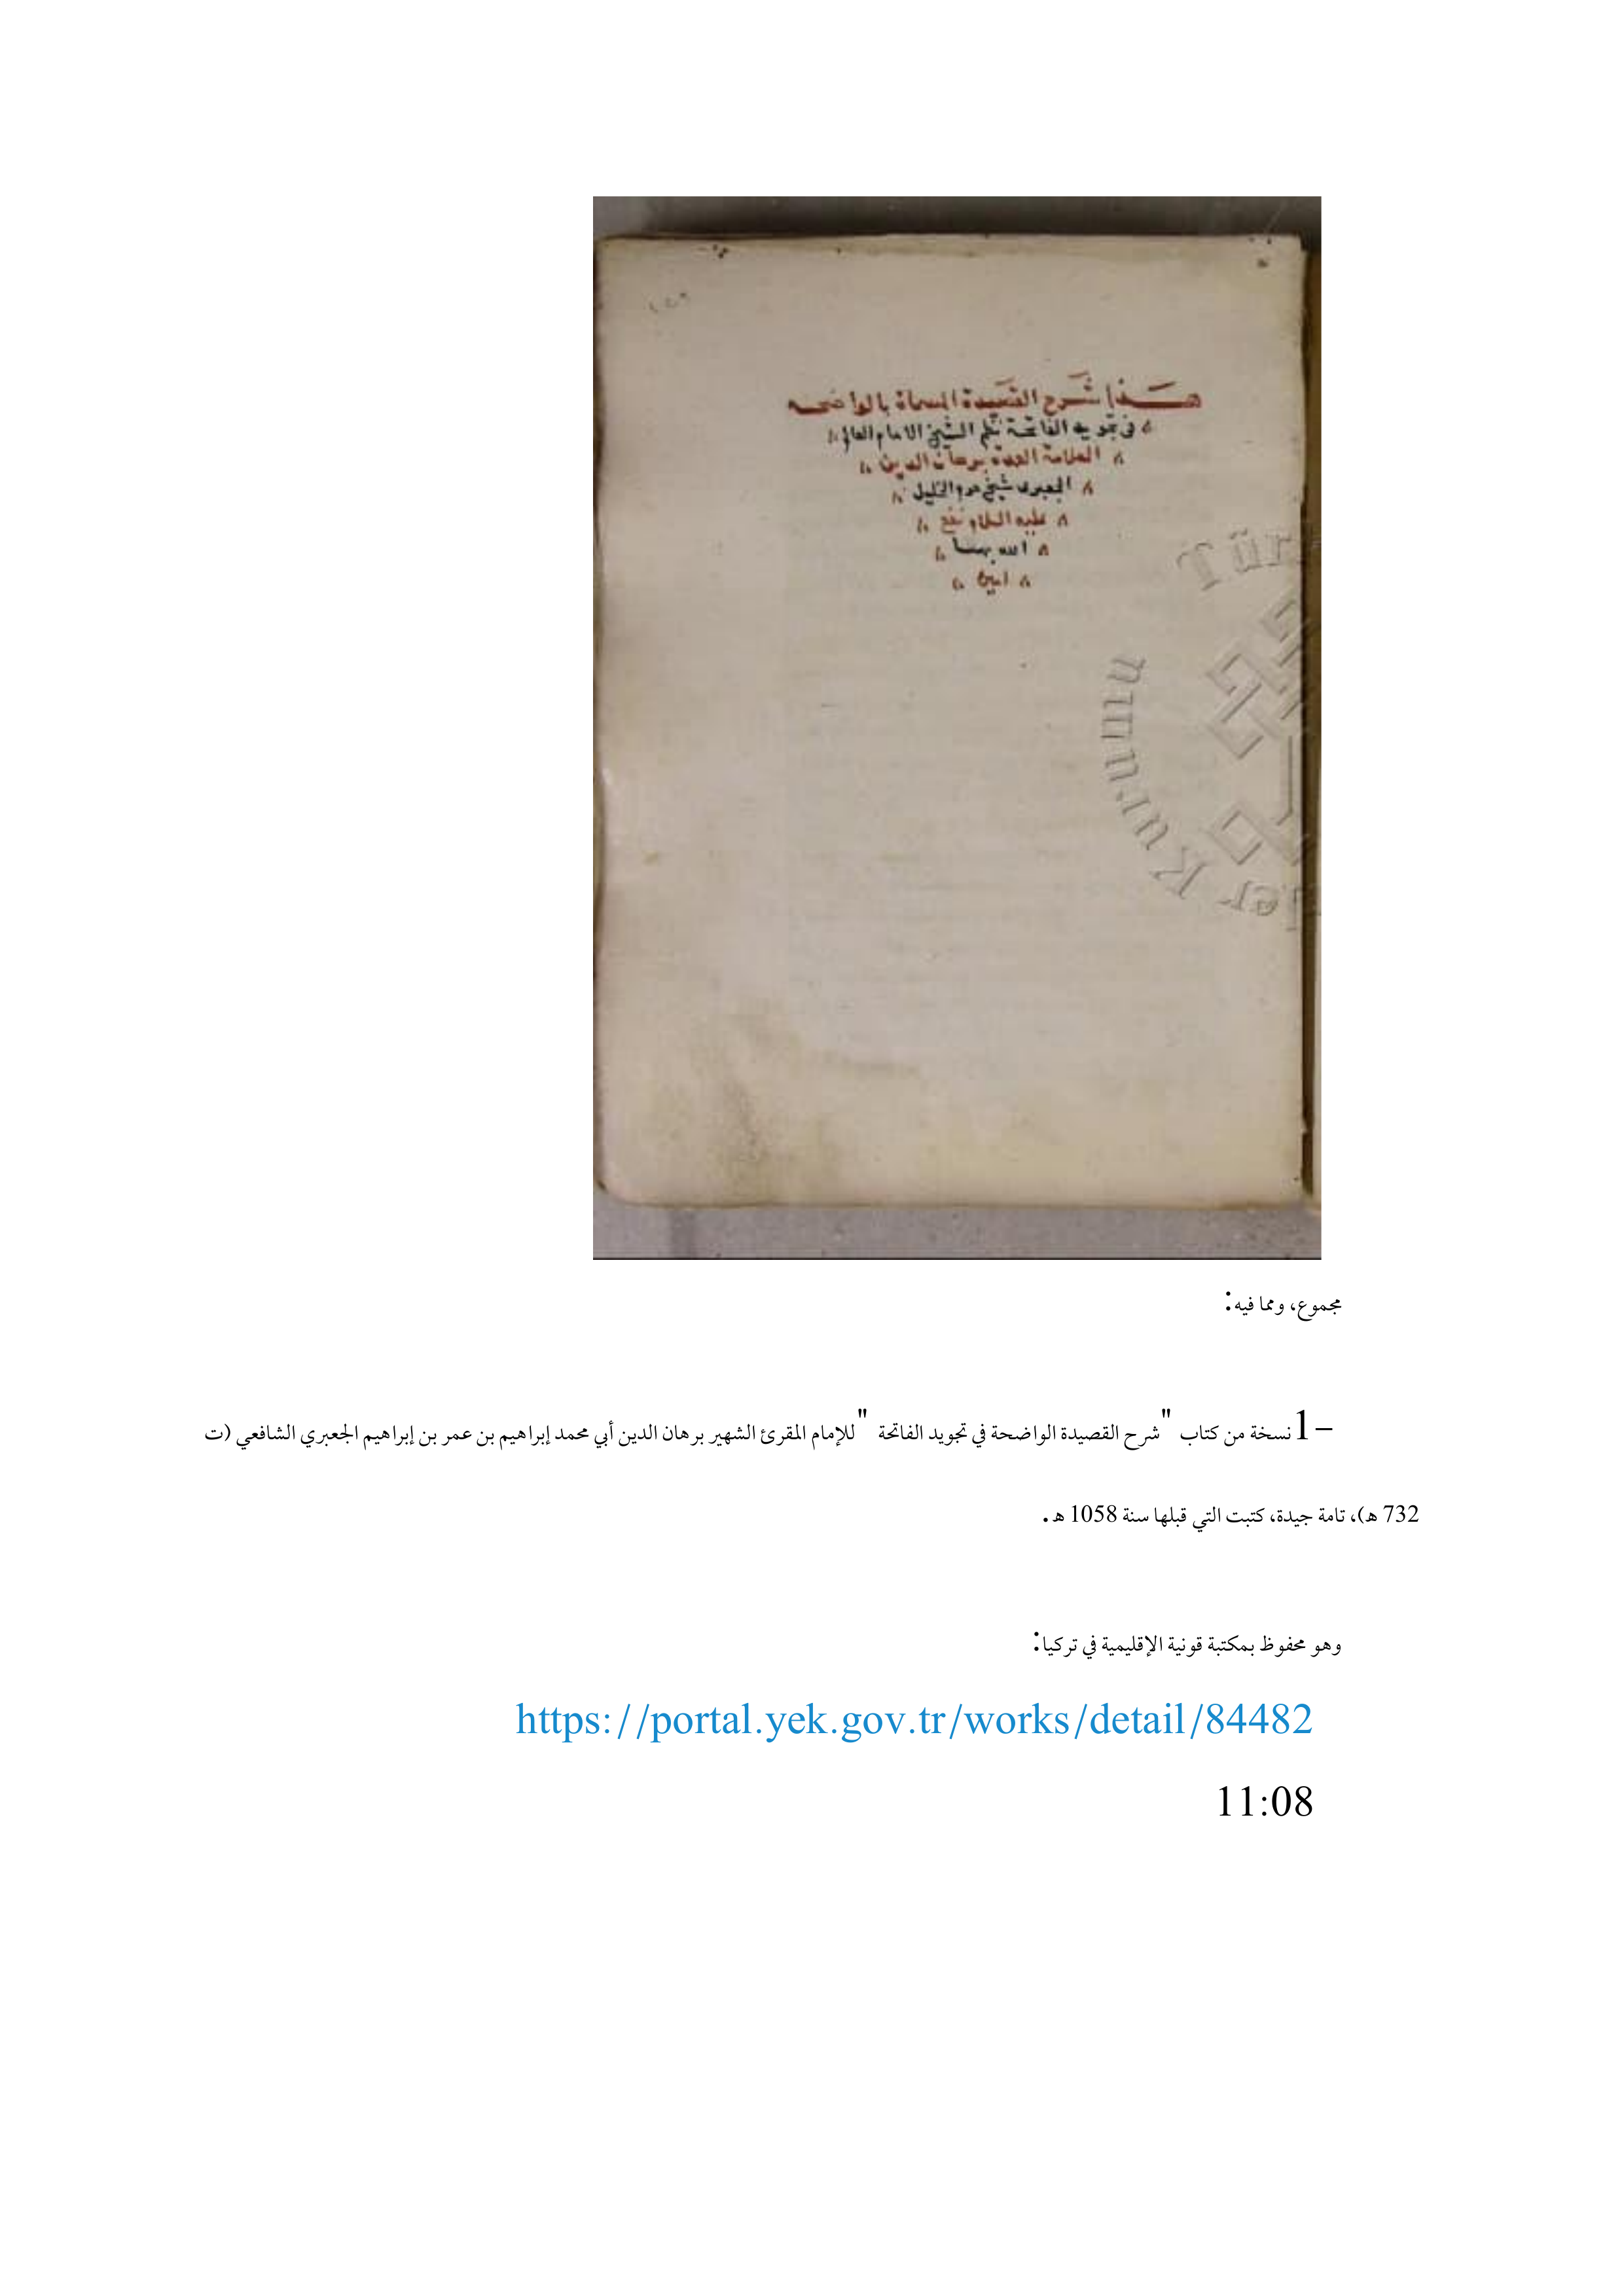 هذا شرح القصيدة المسماة بالواضحه
في تجويد الفاتحة نظم الشيخ الامام العالم
العلامة العمدة برهان الدين
الجعبرى شيخ حرم الخليل
عليه السلام نفع
الله بهما
امين
Tür
er Kurumu
مجموع، ومما فيه:
1- نسخة من كتاب "شرح القصيدة الواضحة في تجويد الفاتحة" للإمام المقرئ الشهير برهان الدين أبي محمد إبراهيم بن عمر بن إبراهيم الجعبري الشافعي (ت
732 هـ)، تامة جيدة، كتبت التي قبلها سنة 1058 هـ.
وهو محفوظ بمكتبة قونية الإقليمية في تركيا:
https://portal.yek.gov.tr/works/detail/84482
11:08